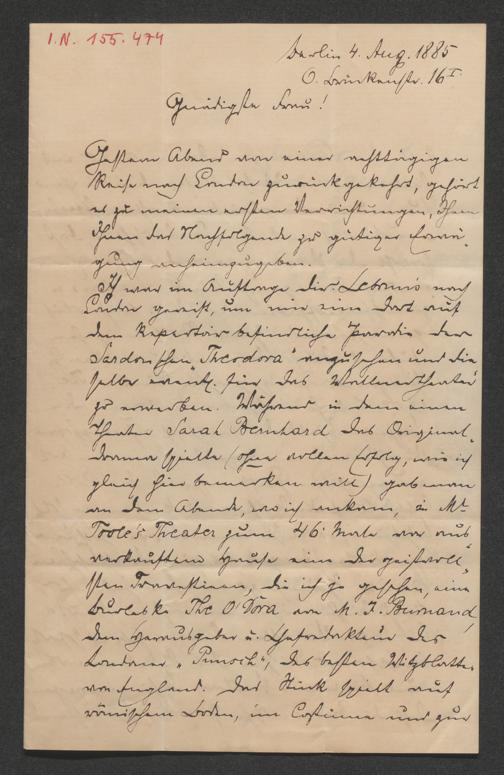 I.N. 155.474
Berlin 4. Aug. 1885
O. Brückenstr. 16 I.
Gnädigste Frau!
Gestern Abend von einer achttägigen
Reise nach London zurückgekehrt, gehört
es zu meinen ersten Verrichtungen,
Ihnen das Nachfolgende zu gütiger Erwä-
gung anheimzugeben.
Ich war im Auftrage Dir. Lebruns nach
London gereist, um mir eine dort auf
dem Repertoir befindliche Parodie der
Sardou'schen „Theodora" anzusehen und die
selbe event. für das Wallnertheater
zu erwerben. Während in dem einen
Theater Sarah Bernhard das Original-
drama spielte (ohne vollen Erfolg, wie ich
gleich hier bemerken will) gab man
an dem Abende, wo ich ankam, in Mr.
Toole's Theater zum 46. Male vor aus-
verkauftem Hause eine der geistvoll-
sten Travestieen, die ich je gesehen, eine
Burleske The O'Dora von M. F. Burnand,
dem Herausgeber u. Chefredakteur des
Londoner „Punch", des besten Witzblattes
von England. Das Stück spielt auf
römischem Boden, im Costüme und zur